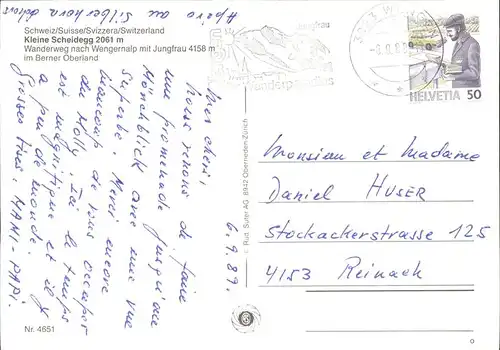 Apéro au Silberhorn dehors
Schweiz/Suisse/Svizzera/Switzerland
Kleine Scheidegg 2061 m
Wanderweg nach Wengernalp mit Jungfrau 4158 m
im Berner Oberland
6.9.89.
Mes chers,
Nous venons de faire
une promenade jusqu'au
Mönchblick avec une vue
superbe. Merci encore
beaucoup de vous occuper
du Molly. Ici le temps
est magnifique et il y
a peu de monde.
Grosses bises. MAMI. PAPI.
Nr. 4651
© Rud. Suter AG 8942 Oberrieden-Zürich
Jungfrau
Wanderparadies
HELVETIA 50
Monsieur et Madame
Daniel HUSER
Stockackerstrasse 125
4153 Reinach